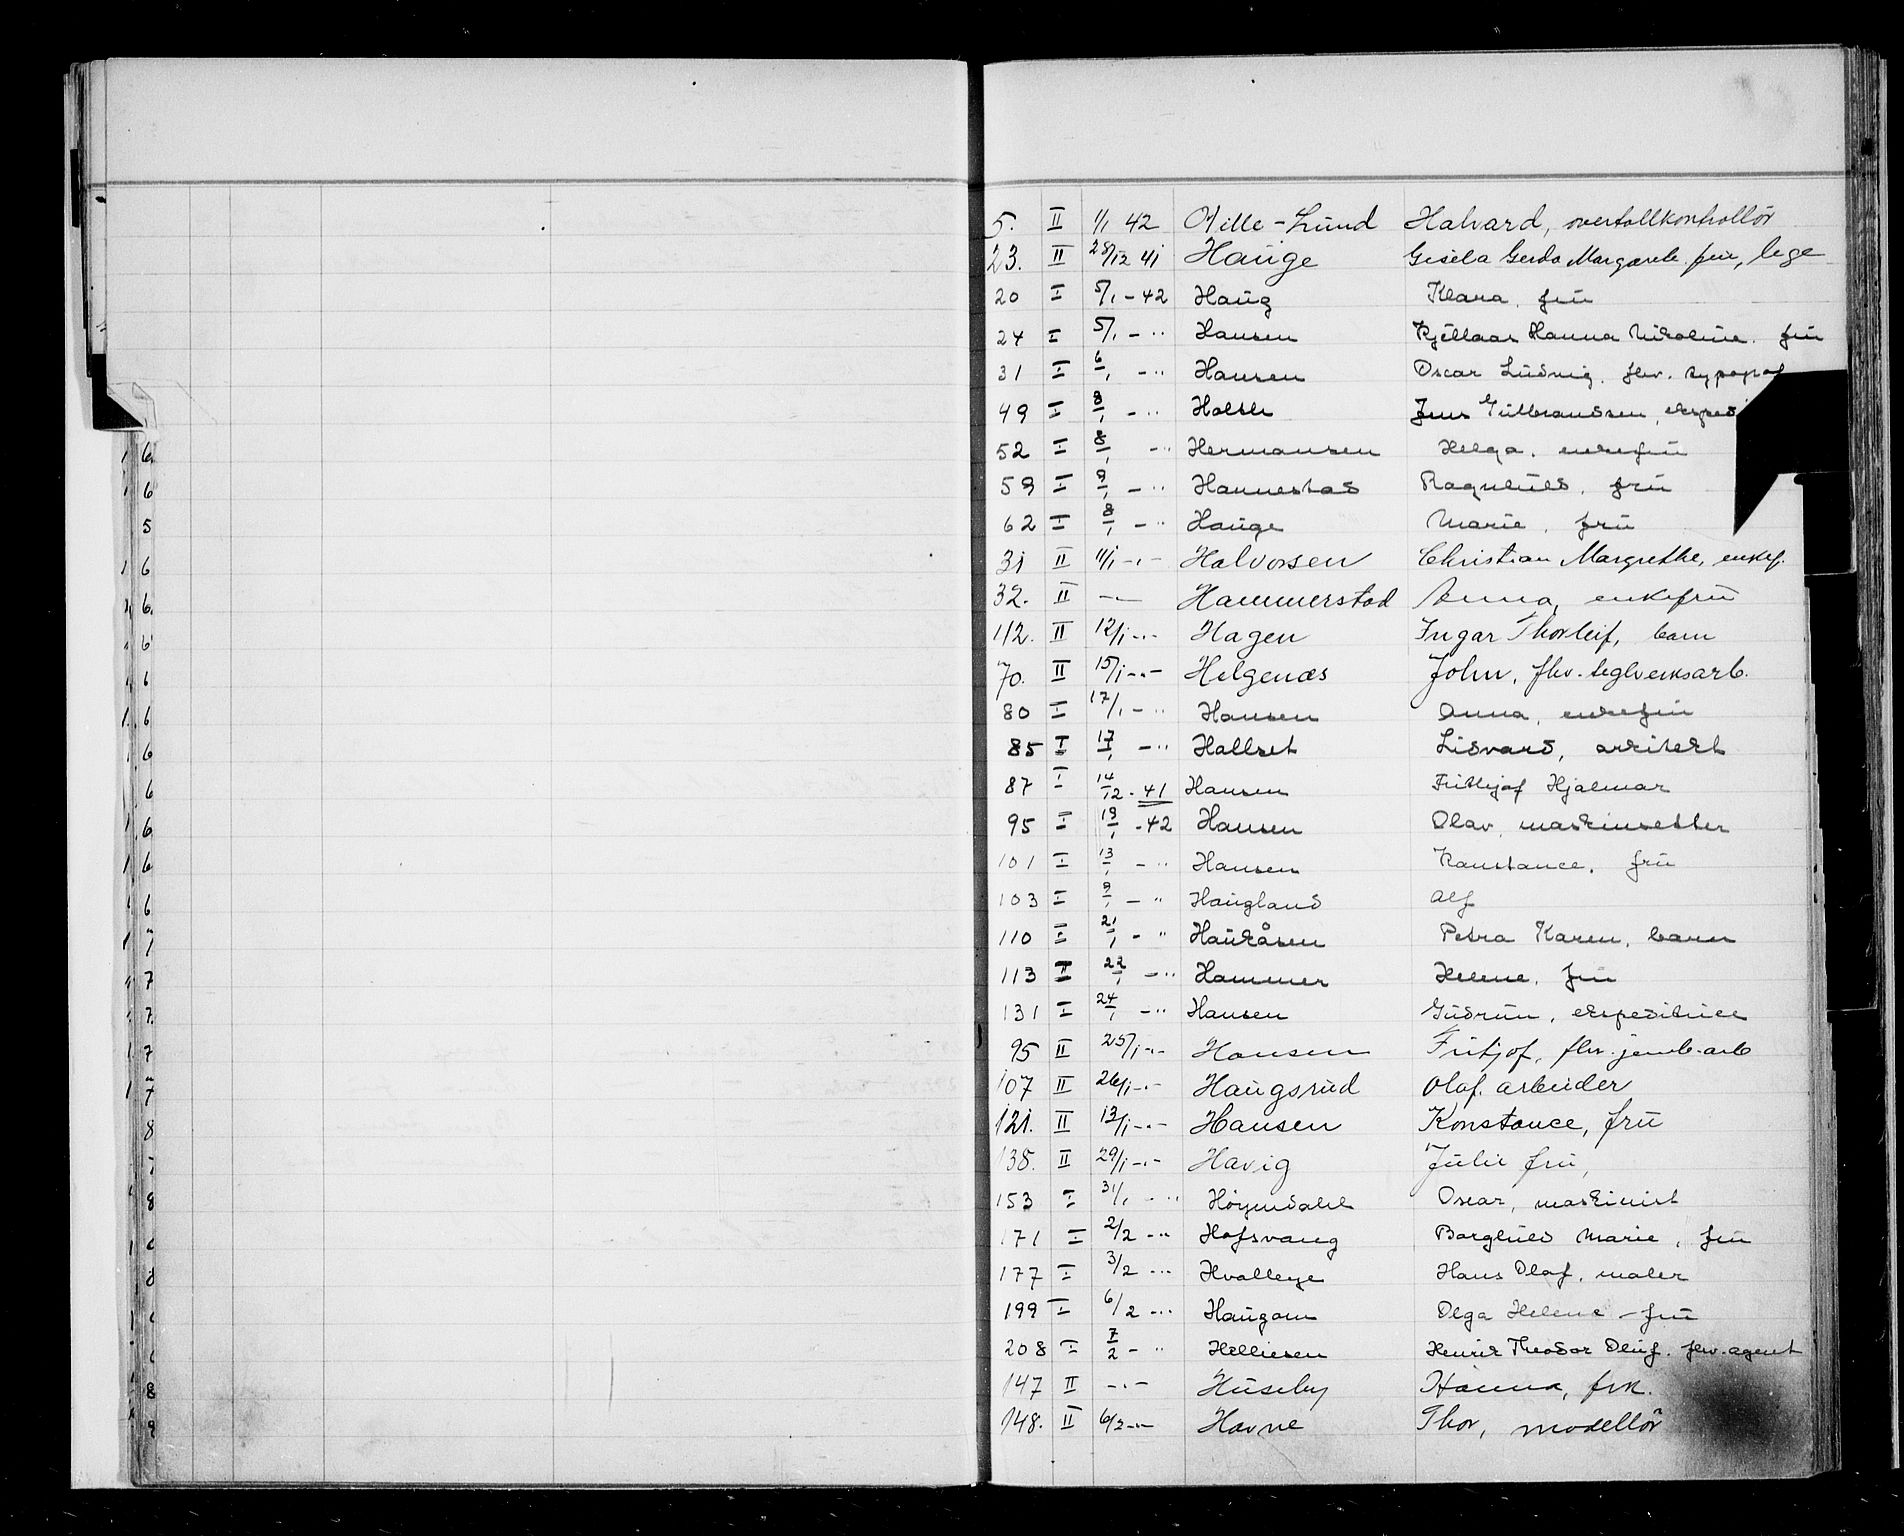 5. II 1/1 42 Hille-Lund Halvard, overtollkontrollör
23. II 28/12 41 Hauge Gisela Gerda Margarete frue, lege
20 I 5/1 - 42 Haug Klara, frü
24 I 5/1 - " Hansen Kjellaas Hanna Nikoline. frü
31 I 6/1 - " Hansen Oscar Ludvig. fhv. typograf
49 I 8/1 - " Holth Jens Gulbrandsen, eksped
52 I 8/1 - " Hermansen Helga, enkefrü
59 I 9/1 - " Hannestad Ragnhild, frü
62 I 8/1 - " Hauge Marie, frü
31 II 11/1 -"- Halvorsen Christian Margrethe, enkef.
32. II -"- Hammerstad Anna, enkefrü
112. II 12/1 -"- Hagen Ingar Thorleif, barn
70. II 15/1 -"- Helgenæs John, fhv. teglverksarb.
80 I 17/1 - " Hansen Anna, enkefrü
85 I 17/1 - " Hallset Lidvard, arkitekt
87 I 14/12 - 41 Hansen Frithjof Hjalmar
95 I 19/1 - 42 Hansen Olav, maskinsetter
101 I 13/1 - " Hansen Konstance, frü
103 I 9/1 - " Haugland Alf
110 I 21/1 - " Haukåsen Petra Karen, barn
113 II 22/1 - " Hammer Helene, frü
131 I 24/1 - " Hansen Gudrun, ekspeditrice
95 II 25/1 -"- Hansen Fritjof, fhv. jernb. arb
107 II 26/1 -"- Haugsrud Olaf, arbeider
121. II 13/1 -"- Hansen Konstance, frü
138. II 29/1 -"- Havig Julie frü,
153 I 31/1 - " Høyendahl Oscar, maskinist
171 I 2/2 - " Hofsvang Borghild Marie, frü
177 I 3/2 - " Hvalbye Hans Olaf, maler
199 I 6/2 - " Haugom Olga Helene - frü
208 I 7/2 - " Helliesen Henrik Theodor Oluf. fhv. agent
147 II -"- Huseby Hanna, frk.
148. II 6/2 -"- Havne Thor, modellör